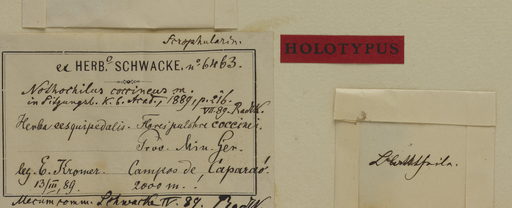 Scrophularin.
ex HERB.º SCHWACKE. nº 6463.
Nothochilus coccineus m.
in Sitzungsb. K. b. Acad., 1889, p. 216.
VII. 89. Radlk.
Herba sesquipedalis. Flores pulchre coccinei.
Prov. Min. Ger.
leg. E. Kromer. Campos de Caparaó.
13/III, 89. 2000 m.
Mecum comm. Schwacke IV. 89. Radlk.
HOLOTYPUS